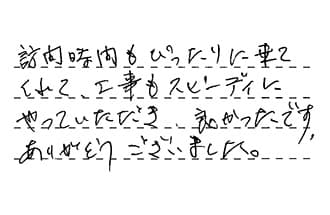 訪問時間もぴったりに来て
くれて、工事もスピーディに
やっていただき、良かったです。
ありがとうございました。